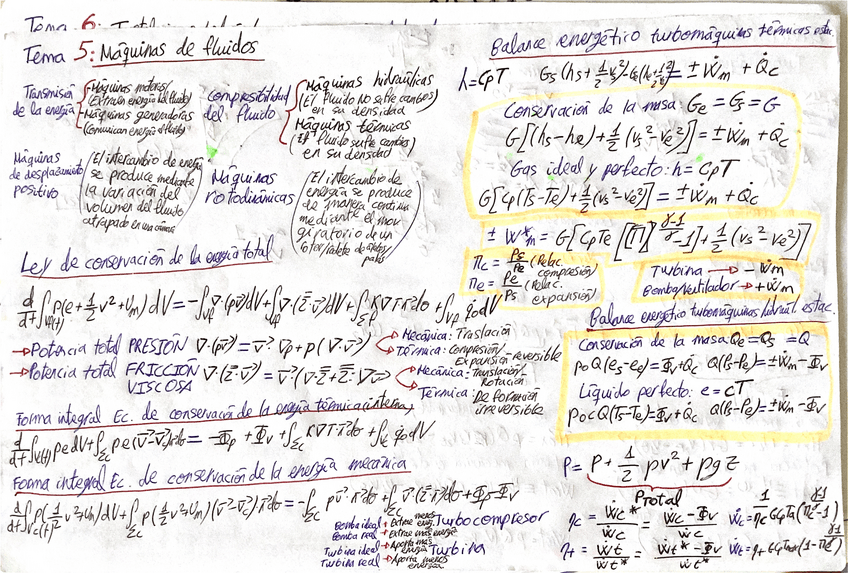 Tema 6:
Tema 5: Máquinas de fluidos
Transmisión de la energía
Máquinas motoras/
(Extraen energía del fluido)
Máquinas generadoras
(Comunican energía al fluido)
Compresibilidad del fluido
Máquinas hidráulicas
(El fluido NO sufre cambios)
en su densidad
Máquinas térmicas
(El fluido sufre cambios)
en su densidad
Máquinas de desplazamiento positivo
(El intercambio de energía
se produce mediante
la variación del
volumen del fluido
atrapado en una cámara
Máquinas rotodinámicas
(El intercambio de
energía se produce
de manera continua
mediante el mov
giratorio de un
rotor/rodete de álabes/
palas
Ley de conservación de la energía total
d/dt ∫Vf(t) ρ(e+1/2 v²+Um)dV = -∫Vf ∇·(pv̄)dV + ∫Vf ∇·(v̄·τ̄)dV + ∫Σf K∇T·n̄dσ + ∫Vf q̇dV
→Potencia total PRESIÓN ∇·(pv̄) = v̄·∇p + p(∇·v̄)
Mecánica: Traslación
Térmica: Compresión/
Expansión reversible
→Potencia total FRICCIÓN VISCOSA
Mecánica: Translación/
Rotación
Térmica: Deformación
irreversible
Forma integral Ec. de conservación de la energía térmica(interna)
Forma integral Ec. de conservación de la energía mecánica
Bomba ideal → Extrae menos energ.
Bomba real → Extrae más energía
Turbocompresor
Turbina ideal → Aporta más energía
Turbina real → Aporta menos energía
Turbina
Balance energético turbomáquinas térmicas estac.
h=CpT
Conservación de la masa: Ge = Gs = G
G[(hs-he)+1/2(vs²-ve²)] = ±Ẇm + Q̇c
Gas ideal y perfecto: h = CpT
G[Cp(Ts-Te)+1/2(vs²-ve²)] = ±Ẇm + Q̇c
± W*m = G[CpTe[[Π]^(γ-1/γ)-1]+1/2(vs²-ve²)]
Πc = Ps/Pe (Relac. compresión)
Πe = Pe/Ps (Relac. expansión)
Turbina → -Ẇm
Bomba/Ventilador → +Ẇm
Balance energético turbomáquinas hidrául. estac.
Conservación de la masa Qe = Qs = Q
ρ0Q(es-ee) = Φv+Q̇c Q(Ps-Pe) = ±Ẇm-Φv
Líquido perfecto: e = cT
ρ0cQ(Ts-Te) = Φv+Q̇c Q(Ps-Pe) = ±Ẇm-Φv
P = P + 1/2 ρv² + ρgz
PTotal
ηc = Ẇc*/Ẇc = Ẇc-Φv/Ẇc
ηt = Ẇt/Ẇt* = Ẇt*-Φv/Ẇt*